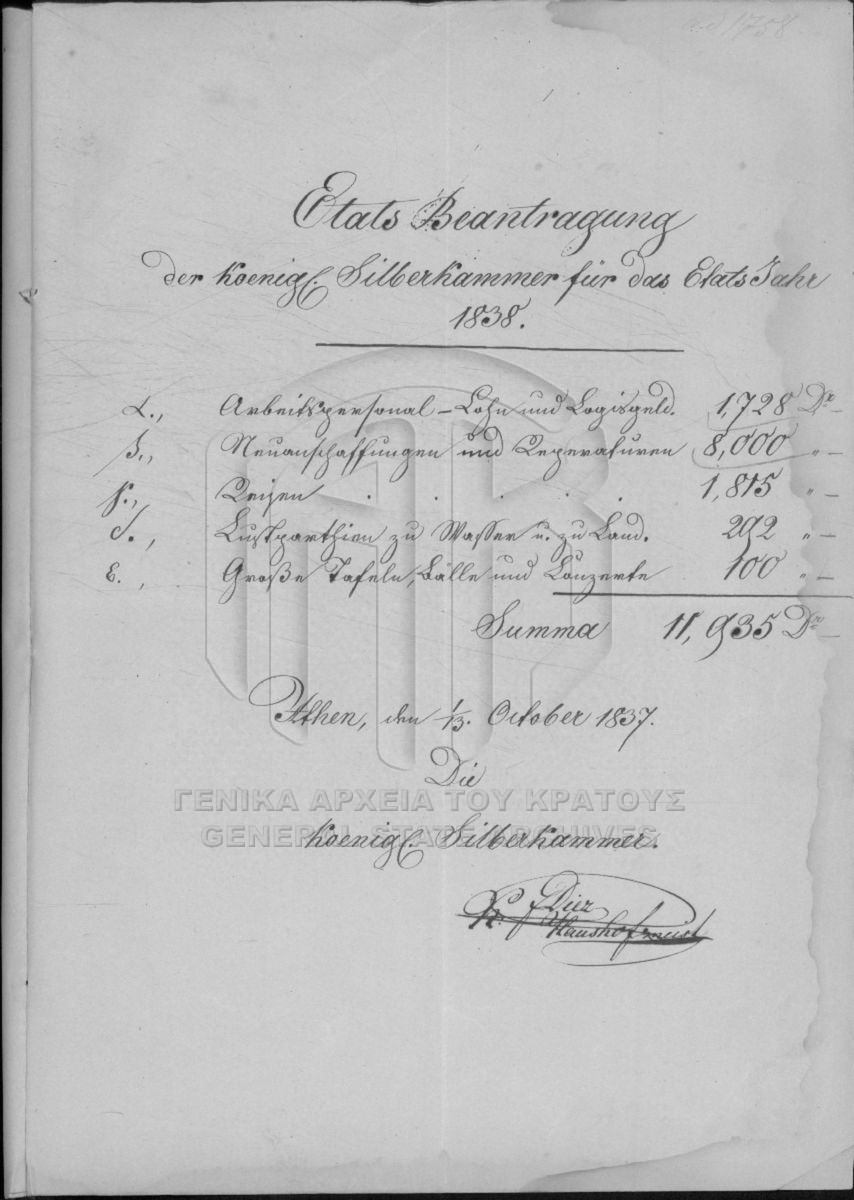 ad 1758
Etats Beantragung
der Koenigl. Silberkammer für das Etats Jahr
1838.
α., Arbeitspersonal-Lohn und Logisgeld. 1,728 Dr –
β., Neuanschaffungen und Reperaturen 8,000 " –
γ., Reisen . . . . . . 1,815 " –
δ., Lustparthien zu Wasser u. zu Land. 292 " –
ε., Große Tafeln, Bälle und Conzerte 100 " –
Summa 11,935 Dr –
Athen, den 1/13. October 1837.
Die
ΓΕΝΙΚΑ ΑΡΧΕΙΑ ΤΟΥ ΚΡΑΤΟΥΣ
GENERAL STATE ARCHIVES
Koenigl. Silberkammer.
Diez
Haushofmeist